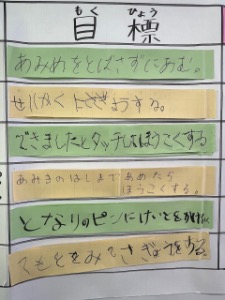 もく ひょう
目標
あみめをとばさずにあむ。
せいかく する。
できましたとタッチしてほうこくする
あみきのはしまであめたら
ほうこくする。
となりのピンにけいとをかけない
てもとをみてさぎょうをする。